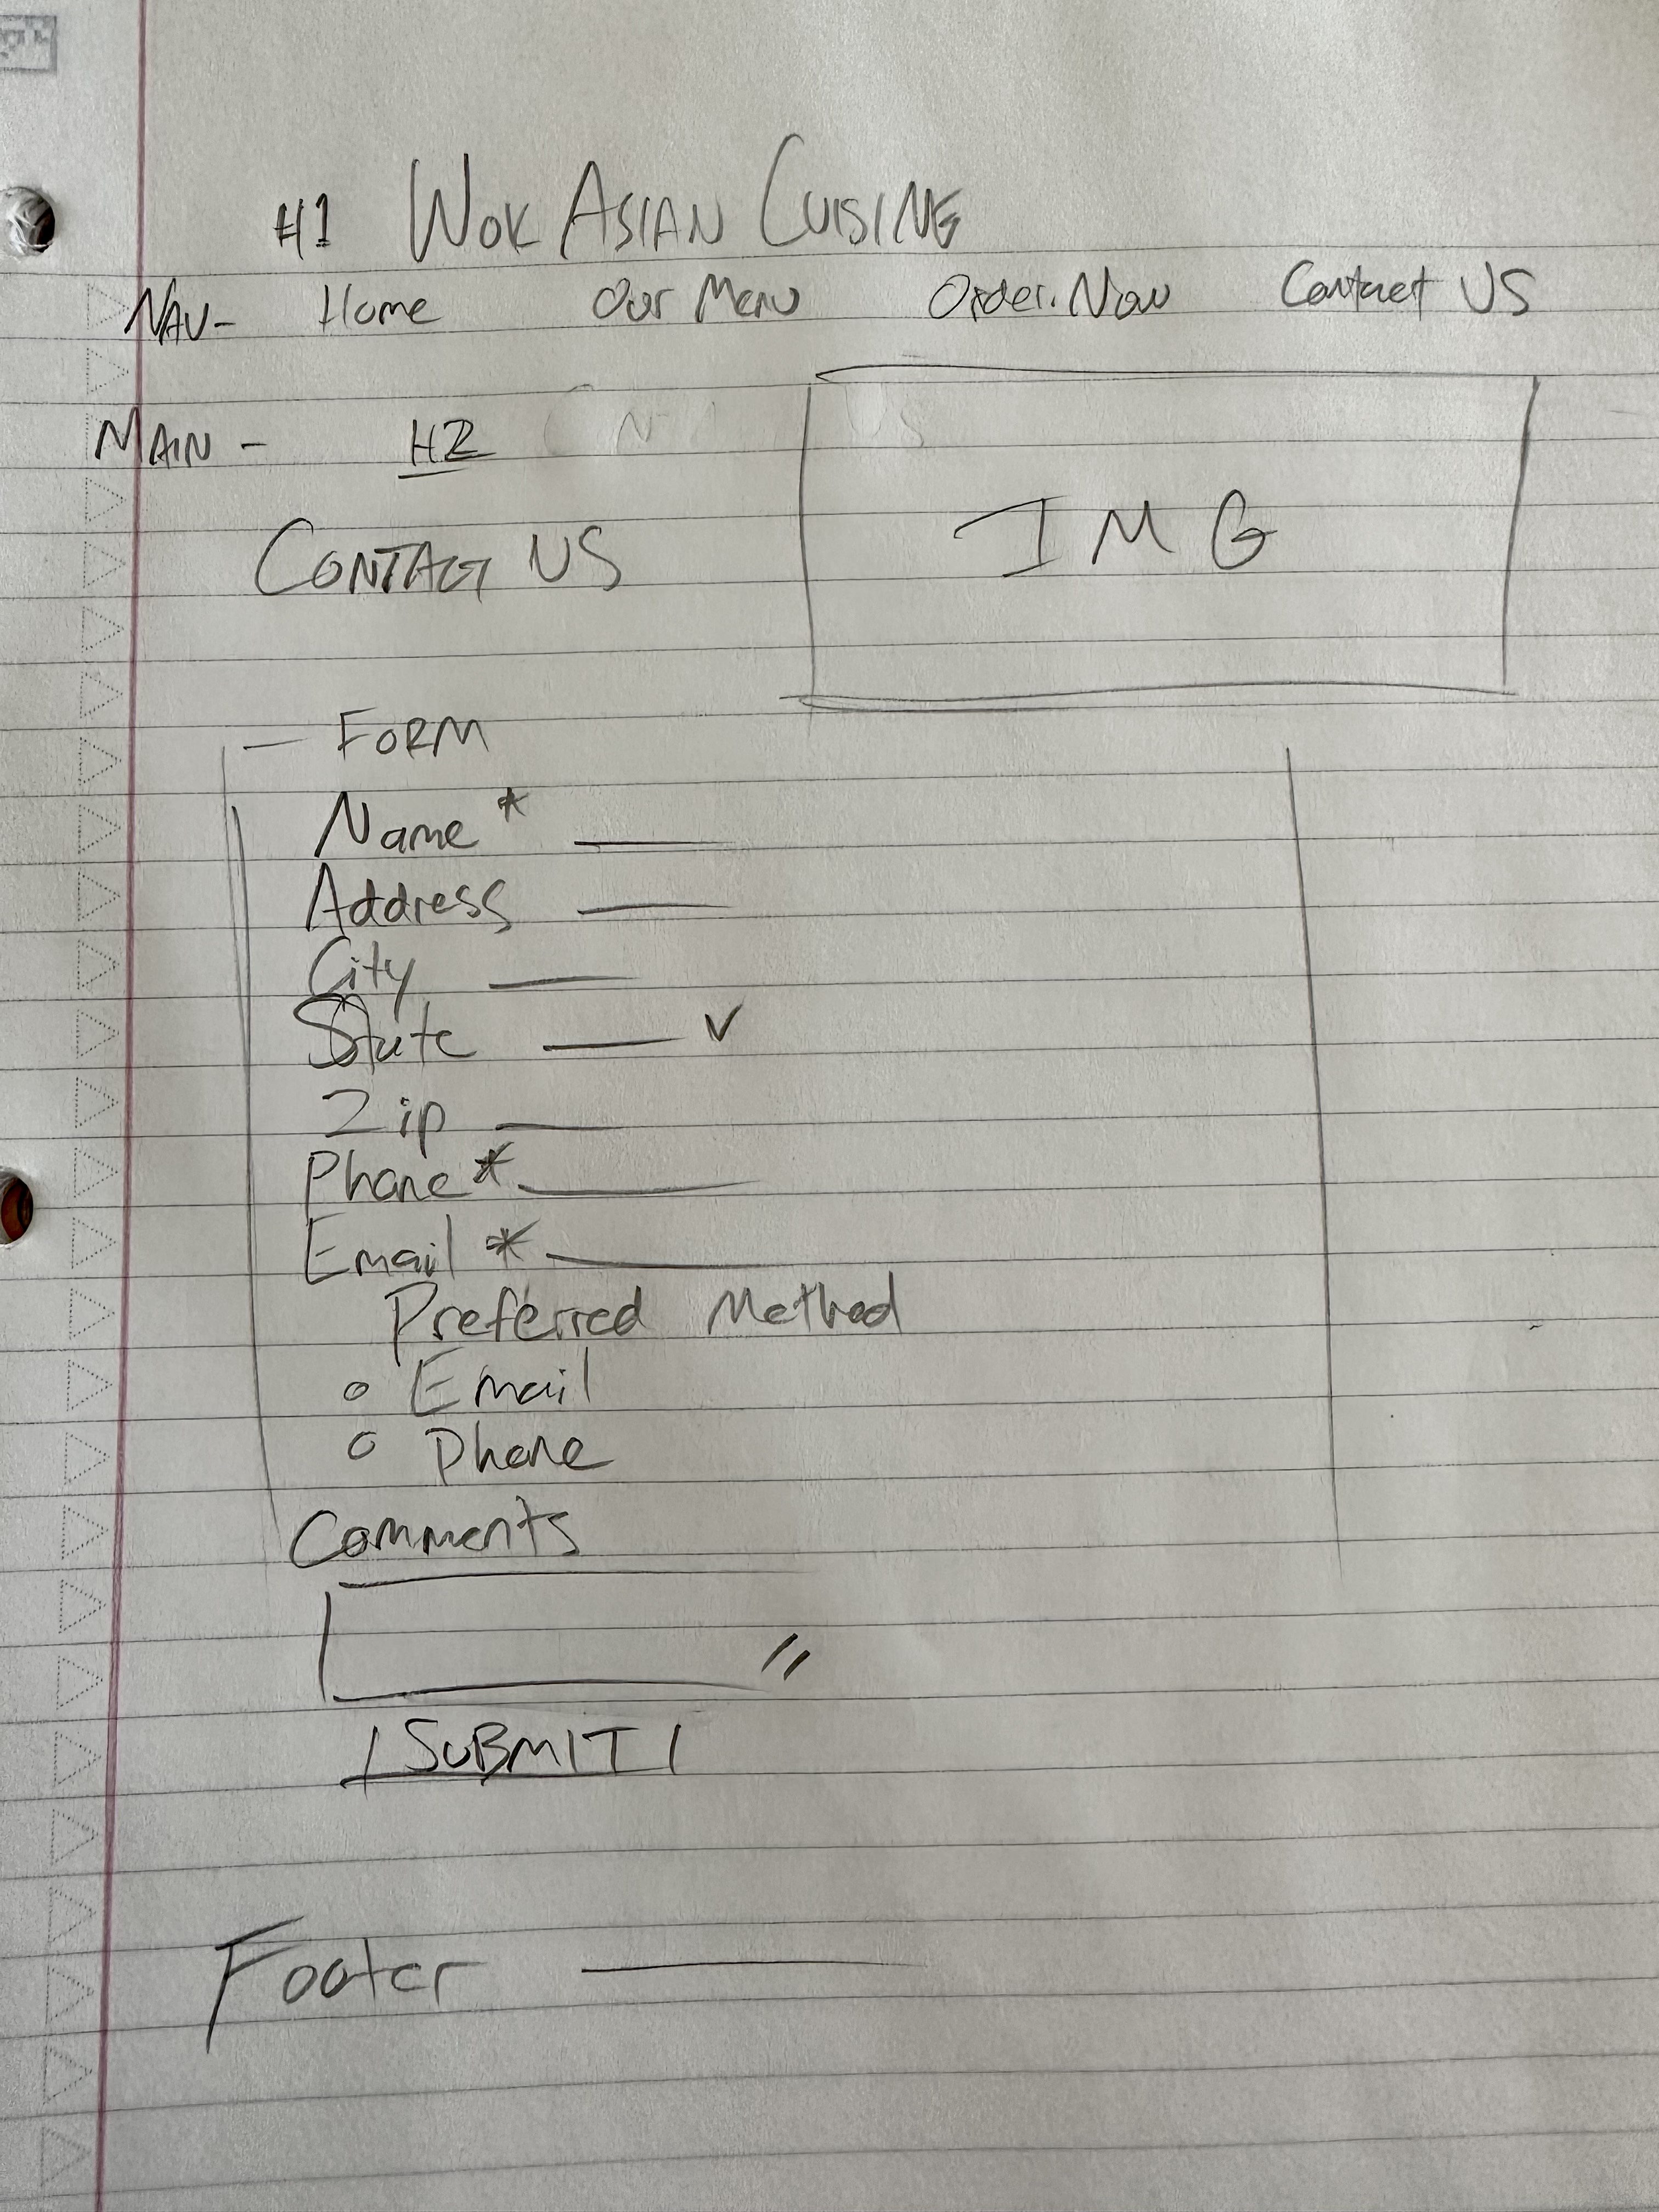 H1 WOK ASIAN CUISINE
NAV- Home Our Menu Order Now Contact US
MAIN - H2
CONTACT US
IMG
— FORM
Name *
Address
City
State v
Zip
Phone *
Email *
Preferred Method
o Email
o Phone
Comments
SUBMIT
Footer